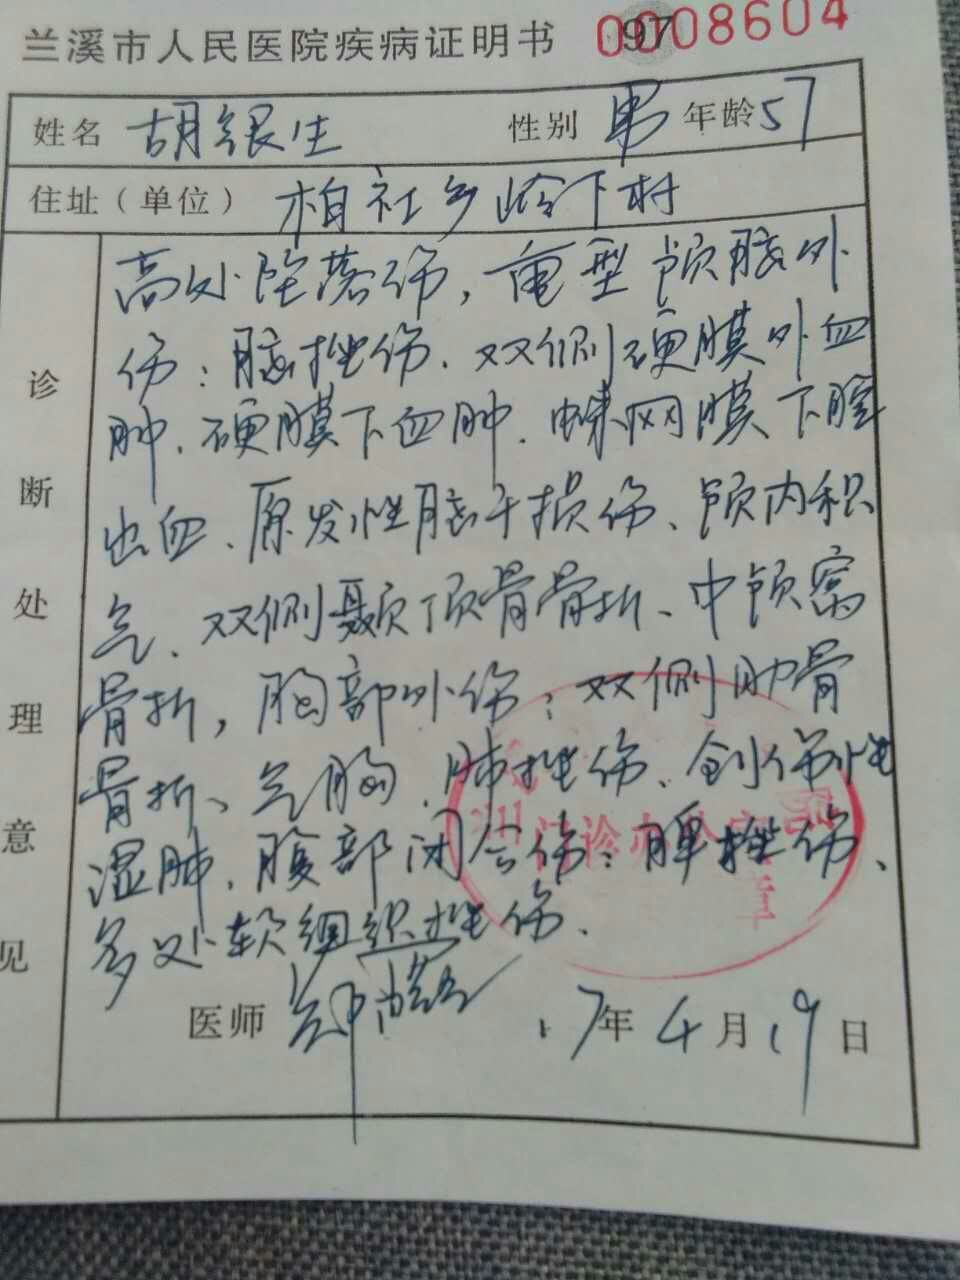 兰溪市人民医院疾病证明书 0008604
97
姓名 胡银生 性别 男 年龄 57
住址（单位） 柏社乡岭下村
诊断处理意见
高处坠落伤，重型颅脑外
伤：脑挫伤、双侧硬膜外血
肿、硬膜下血肿、蛛网膜下腔
出血、原发性脑干损伤、颅内积
气、双侧颞顶骨骨折、中颅窝
骨折，胸部外伤：双侧肋骨
骨折、气胸、肺挫伤、创伤性
湿肺，腹部闭合伤：脾挫伤、
多处软组织挫伤.
门诊办公室
章
医师 17年4月19日